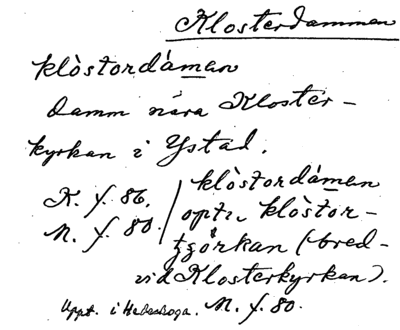 Klosterdammen
klòstordáman
damm nära Kloster-
kyrkan i Ystad.
K. f. 86.
M. f. 80.
klòstordáman
opt. klòstor-
tjörkan (bred-
vid Klosterkyrkan).
Uppt. i Hedeskoga. M. f. 80.